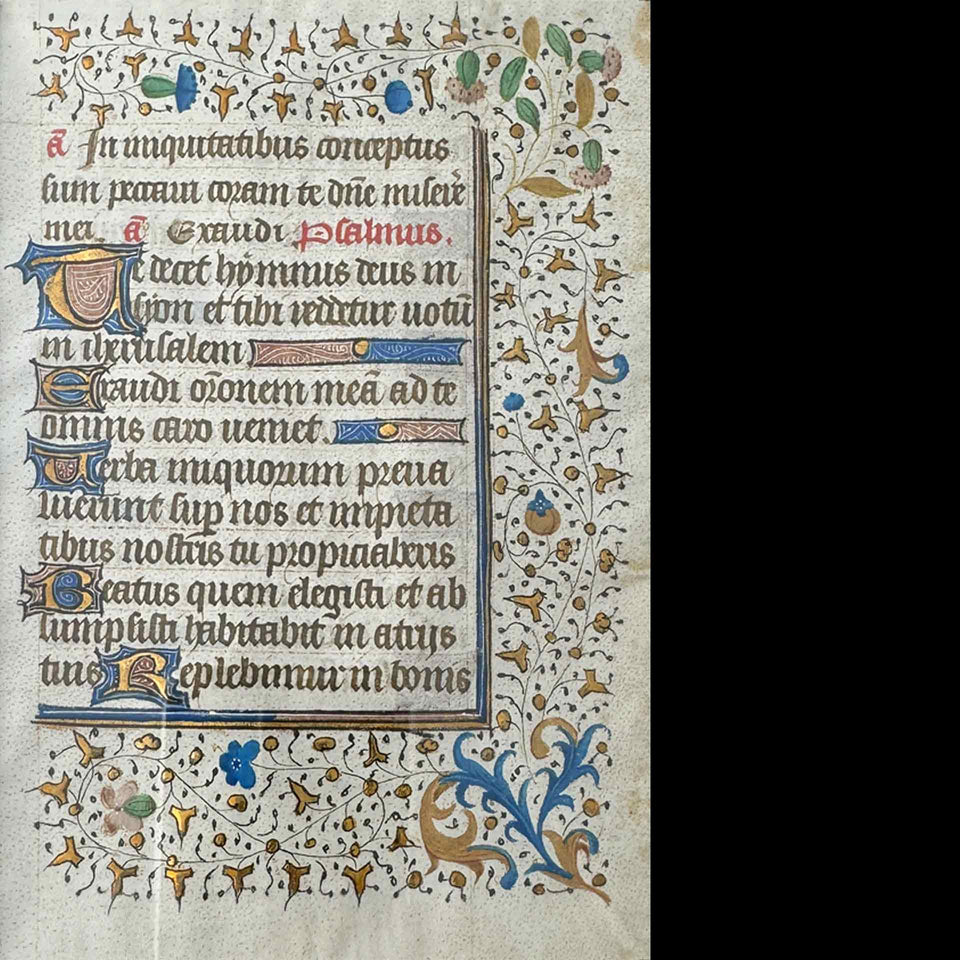 ā In iniquitatibus conceptus
sum peccaui coram te dn̄e misere͛
mei. ā Exaudi Psalmus.
Te decet hẏmnus deus in
syon et tibi reddetur uotū
in iherusalem
Exaudi or̄onem meā ad te
omnis caro ueniet.
Uerba iniquorum preua
luerunt sup̱ nos et impieta
tibus nostris tu propiciaberis
Beatus quem elegisti et ab
sumpsisti habitabit in atrijs
tuis Replebimur in bonis